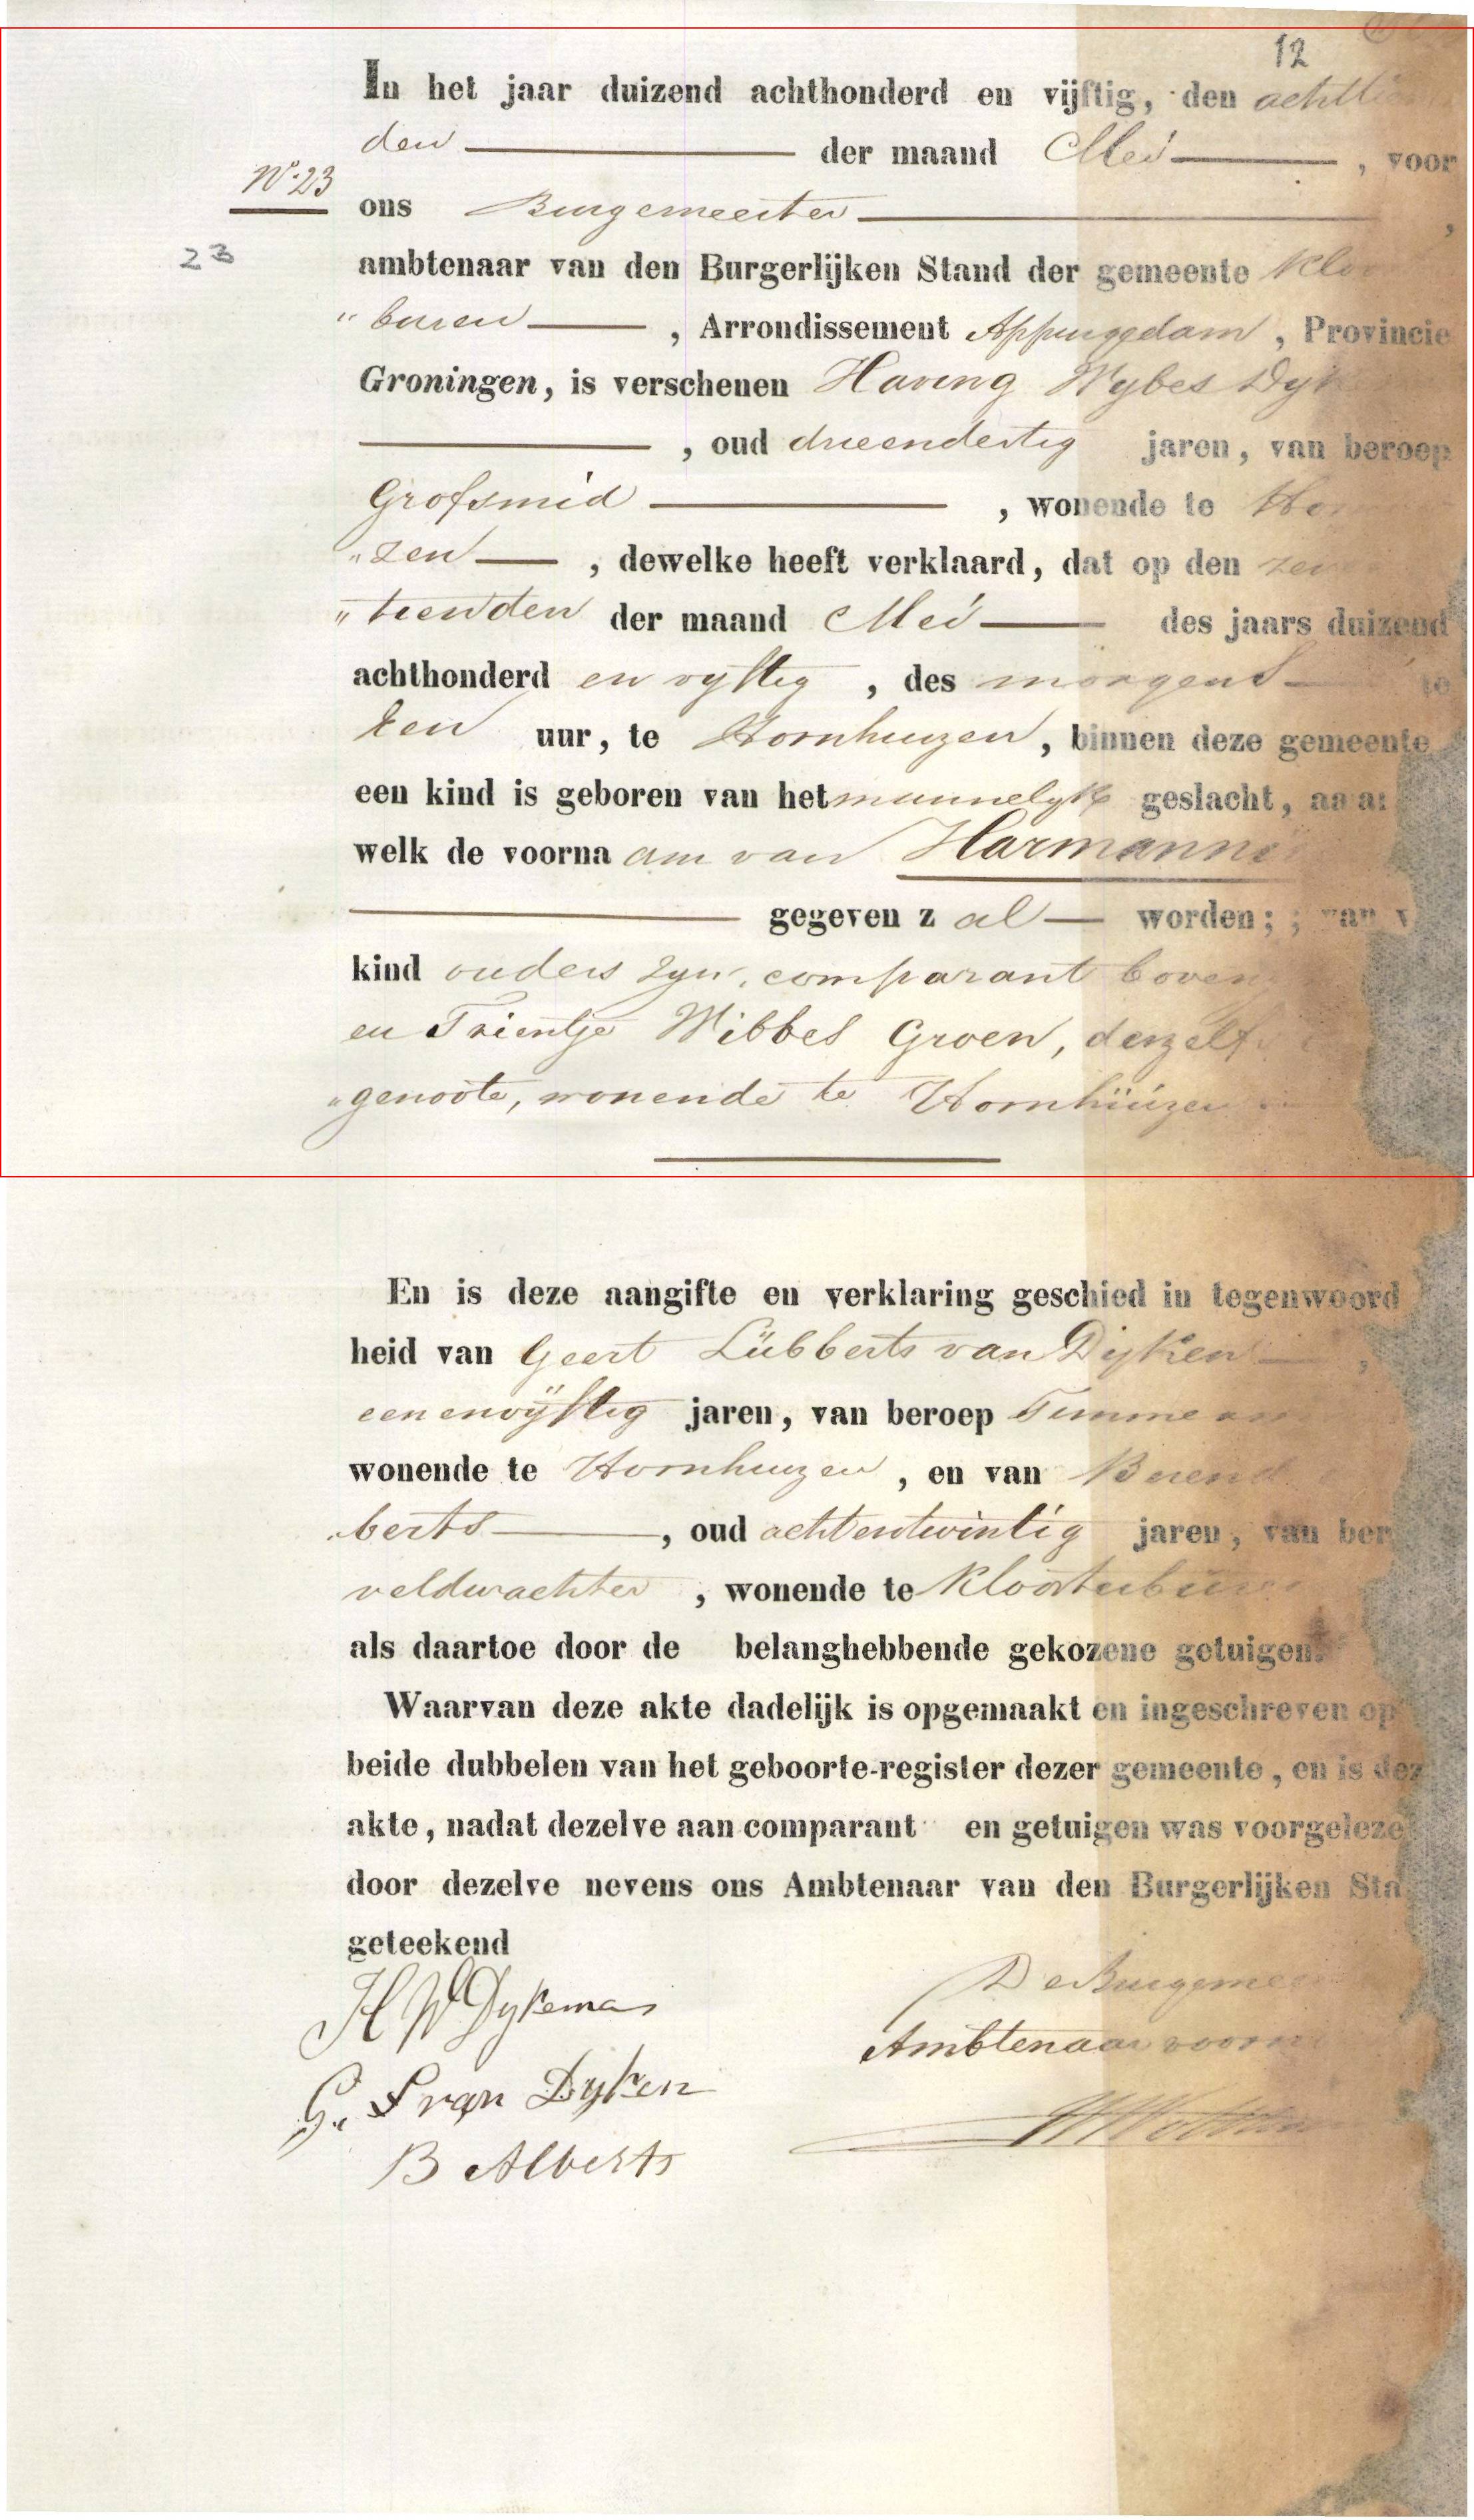 12
In het jaar duizend achthonderd en vijftig, den achttien
den der maand Mei , voor
No. 23
ons Burgemeester ,
23
ambtenaar van den Burgerlijken Stand der gemeente Kloo
„ buren , Arrondissement Appingedam , Provincie
Groningen, is verschenen Having Wybes Dyk
, oud drieendertig jaren, van beroep
Grofsmid , wonende te Horn
„ zen , dewelke heeft verklaard, dat op den zeven
„ tienden der maand Mei des jaars duizend
achthonderd en vyftig , des morgens te
tien uur, te Hornhuizen, binnen deze gemeente
een kind is geboren van het mannelyk geslacht, aan
welk de voorna am van Harmannu
gegeven z al worden; ; van
kind ouders zyn, comparant boveng
en Trientje Wibbes Groen, deszelfs
„ genoote, wonende te Hornhuizen
En is deze aangifte en verklaring geschied in tegenwoord
heid van Geert Lübberts van Dijken ,
eenenvijftig jaren, van beroep Timmerm
wonende te Hornhuizen , en van Berend
„ berts , oud achtentwintig jaren, van ber
veldwachter , wonende te Kloosterburen
als daartoe door de belanghebbende gekozene getuigen.
Waarvan deze akte dadelijk is opgemaakt en ingeschreven op
beide dubbelen van het geboorte-register dezer gemeente, en is dez
akte, nadat dezelve aan comparant en getuigen was voorgeleze
door dezelve nevens ons Ambtenaar van den Burgerlijken Sta
geteekend
H W Dykema
De Burgemee
Ambtenaar voorn
G. L van Dyken
B Alberts